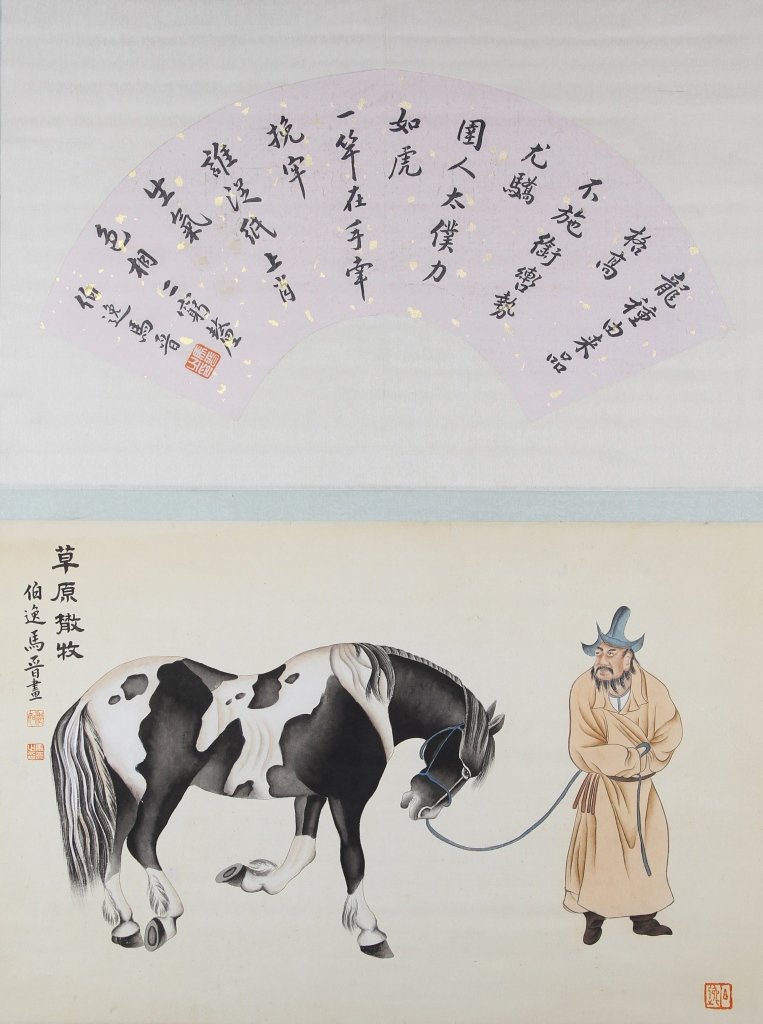 龍種由来品
格高
不施銜轡勢
尤驕
圉人太僕力
如虎
一竿在手牽
挽牢
誰從紙上肖
生氣
色相一一窮
伯逸馬晋
草原撒牧
伯逸馬晋畫